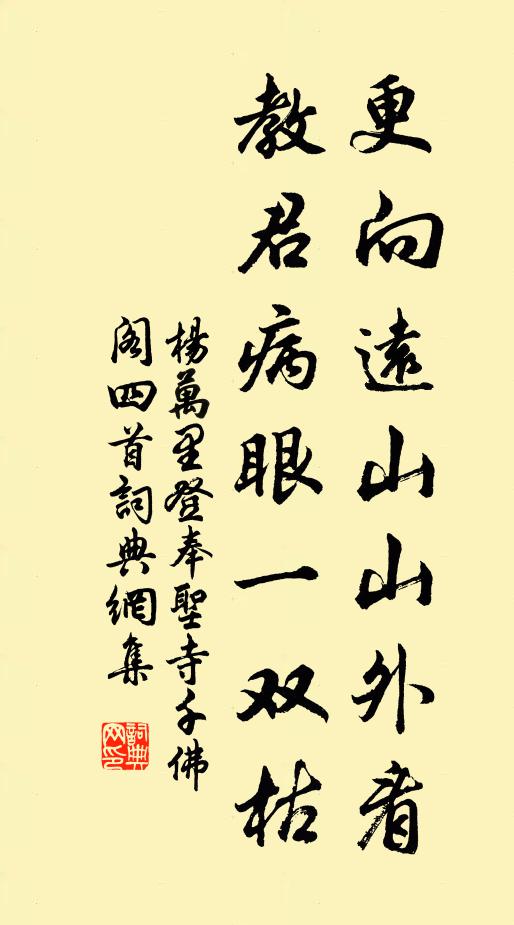 更向遠山山外看
教君病眼一双枯
楊萬里登奉聖寺千佛
閣四首詞典網集
詞典
网印